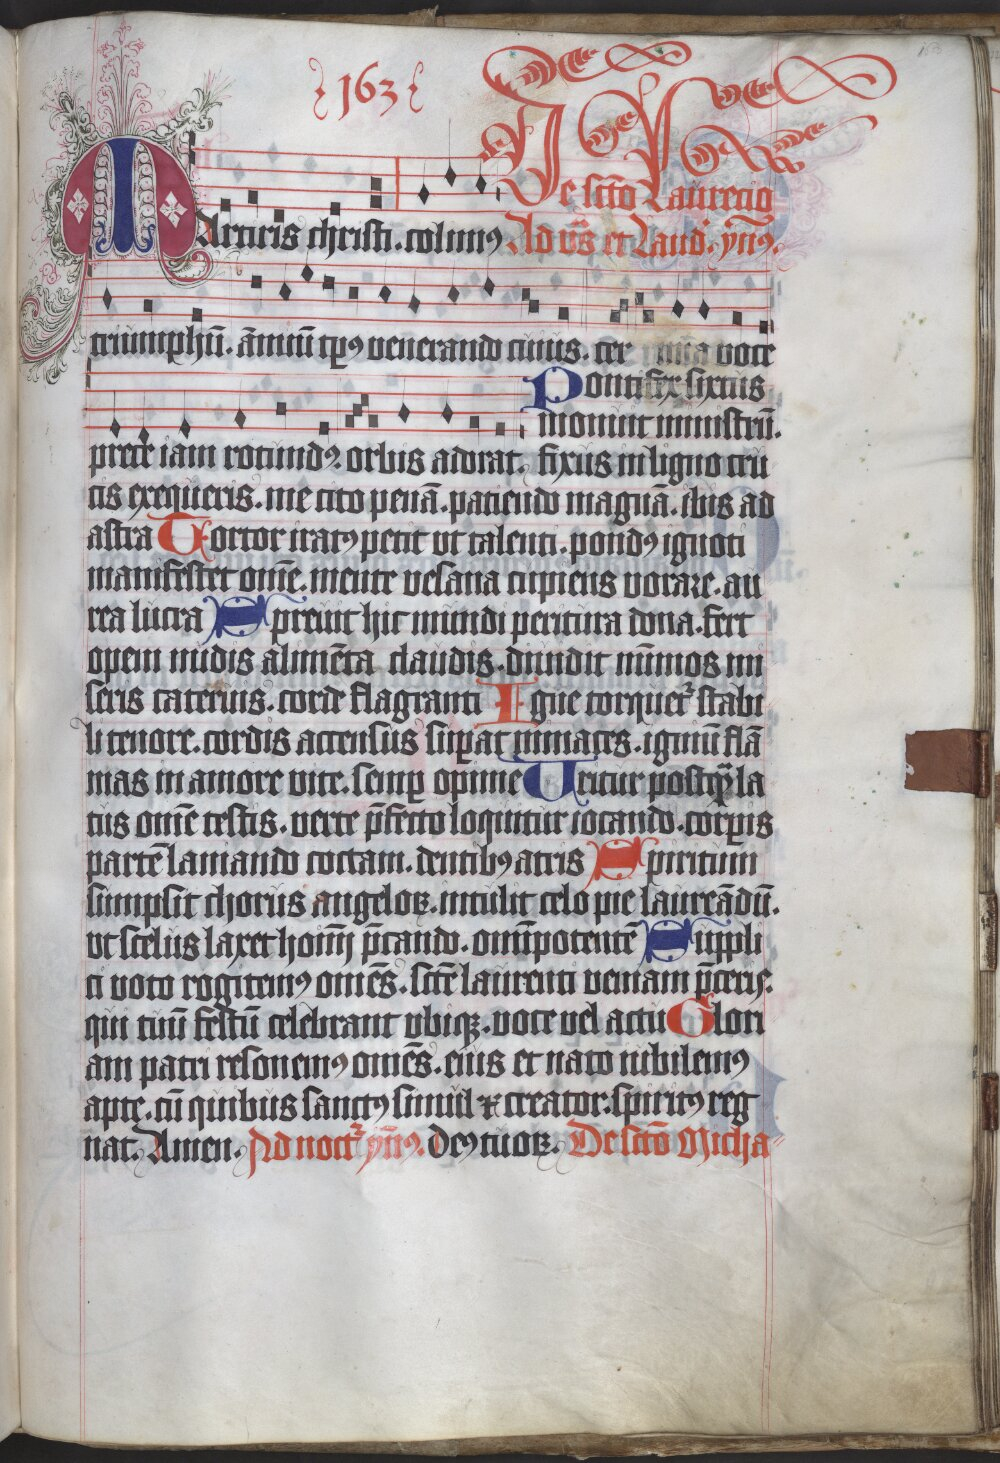 163
De scto Laurētio
Martiris christi . colimꝰ Ad vrs̄ et Laud . ymꝰ .
triumphū . ānnuū tp̄ꝰ venerando cuius . cer nua voce
Pontifex sixtus
monuit ministrū .
prece iam rotundꝰ orbis adorat . fixus in ligno cru
cis exequeris . me cito penā . patiendo magnā . ibis ad
astra Tortor iratꝰ petit vt talenti . pondꝰ ignoti
manifestet om̄e . mente vesana cupiens vorare . au
rea lucra Spreuit hic mundi peritura dona . fert
opem nudis alimēta claudis . diuidit nūmos mi
seris cateruis . corde flagranti Igne torquet̄ stabi
li tenore . cordis accensus supat minaces . ignium flā
mas in amore vite . semp opime Uritur postq̄ la
tus om̄e testis . verte p̄fecto loquitur iocando . corpis
partē laniando coctam . dentibꝰ atris Spiritum
sumpsit chorus angeloꝝ . intulit celo pie laureādū .
vt scelus laxet homīī p̄cando . omīpotentē Suppli
ci voto rogitemꝰ om̄es . scte laurenti veniam p̄ceris .
qui tuū festū celebrant vbiqꝫ . voce vel actu Glori
am patri resonemꝰ om̄es . eius et nato iubilemꝰ
apte . cū quibus sanctꝰ simul et creator . spiritꝰ reg
nat . Amen . Ad noct̄ ym̄ꝰ . Deꝰ tuoꝝ . De scto Micha